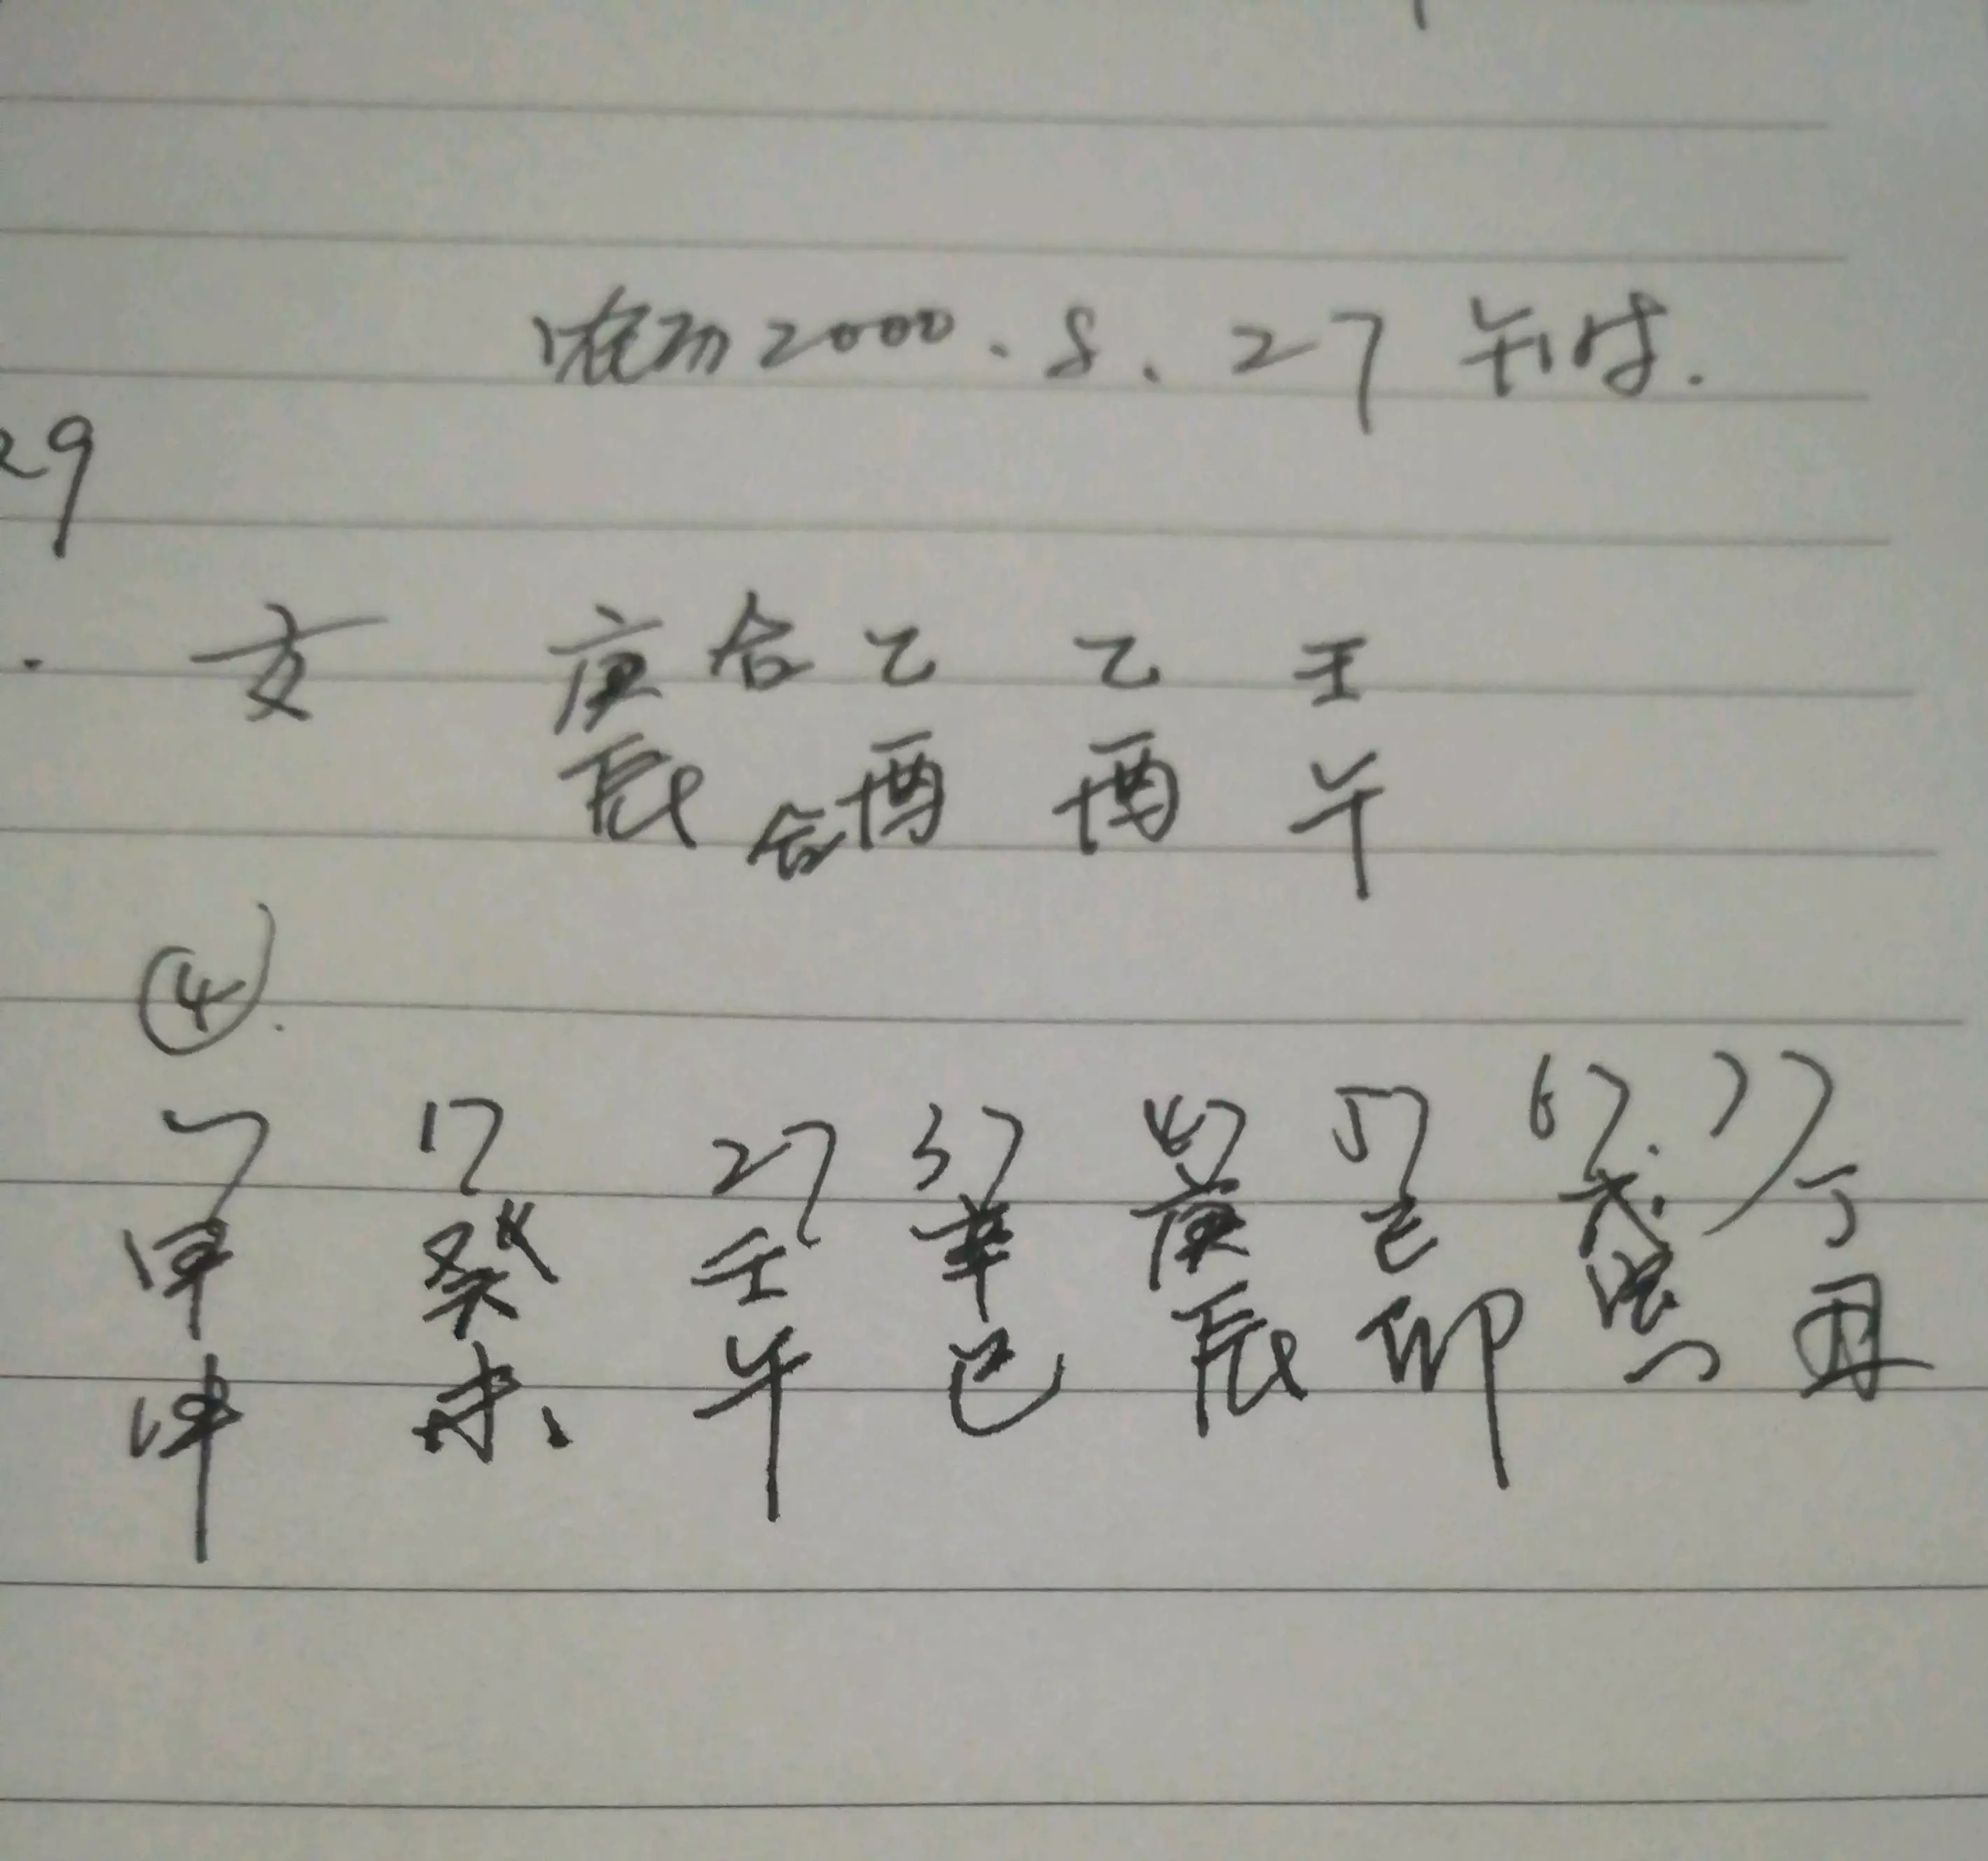 农历2000.8.27 午时.
29
女 庚合乙 乙 壬
辰合酉 酉 午
④.
7 17 27 37 47 57 67. 77
甲 癸 壬 辛 庚 己 戊 丁
申 未 午 巳 辰 卯 丑